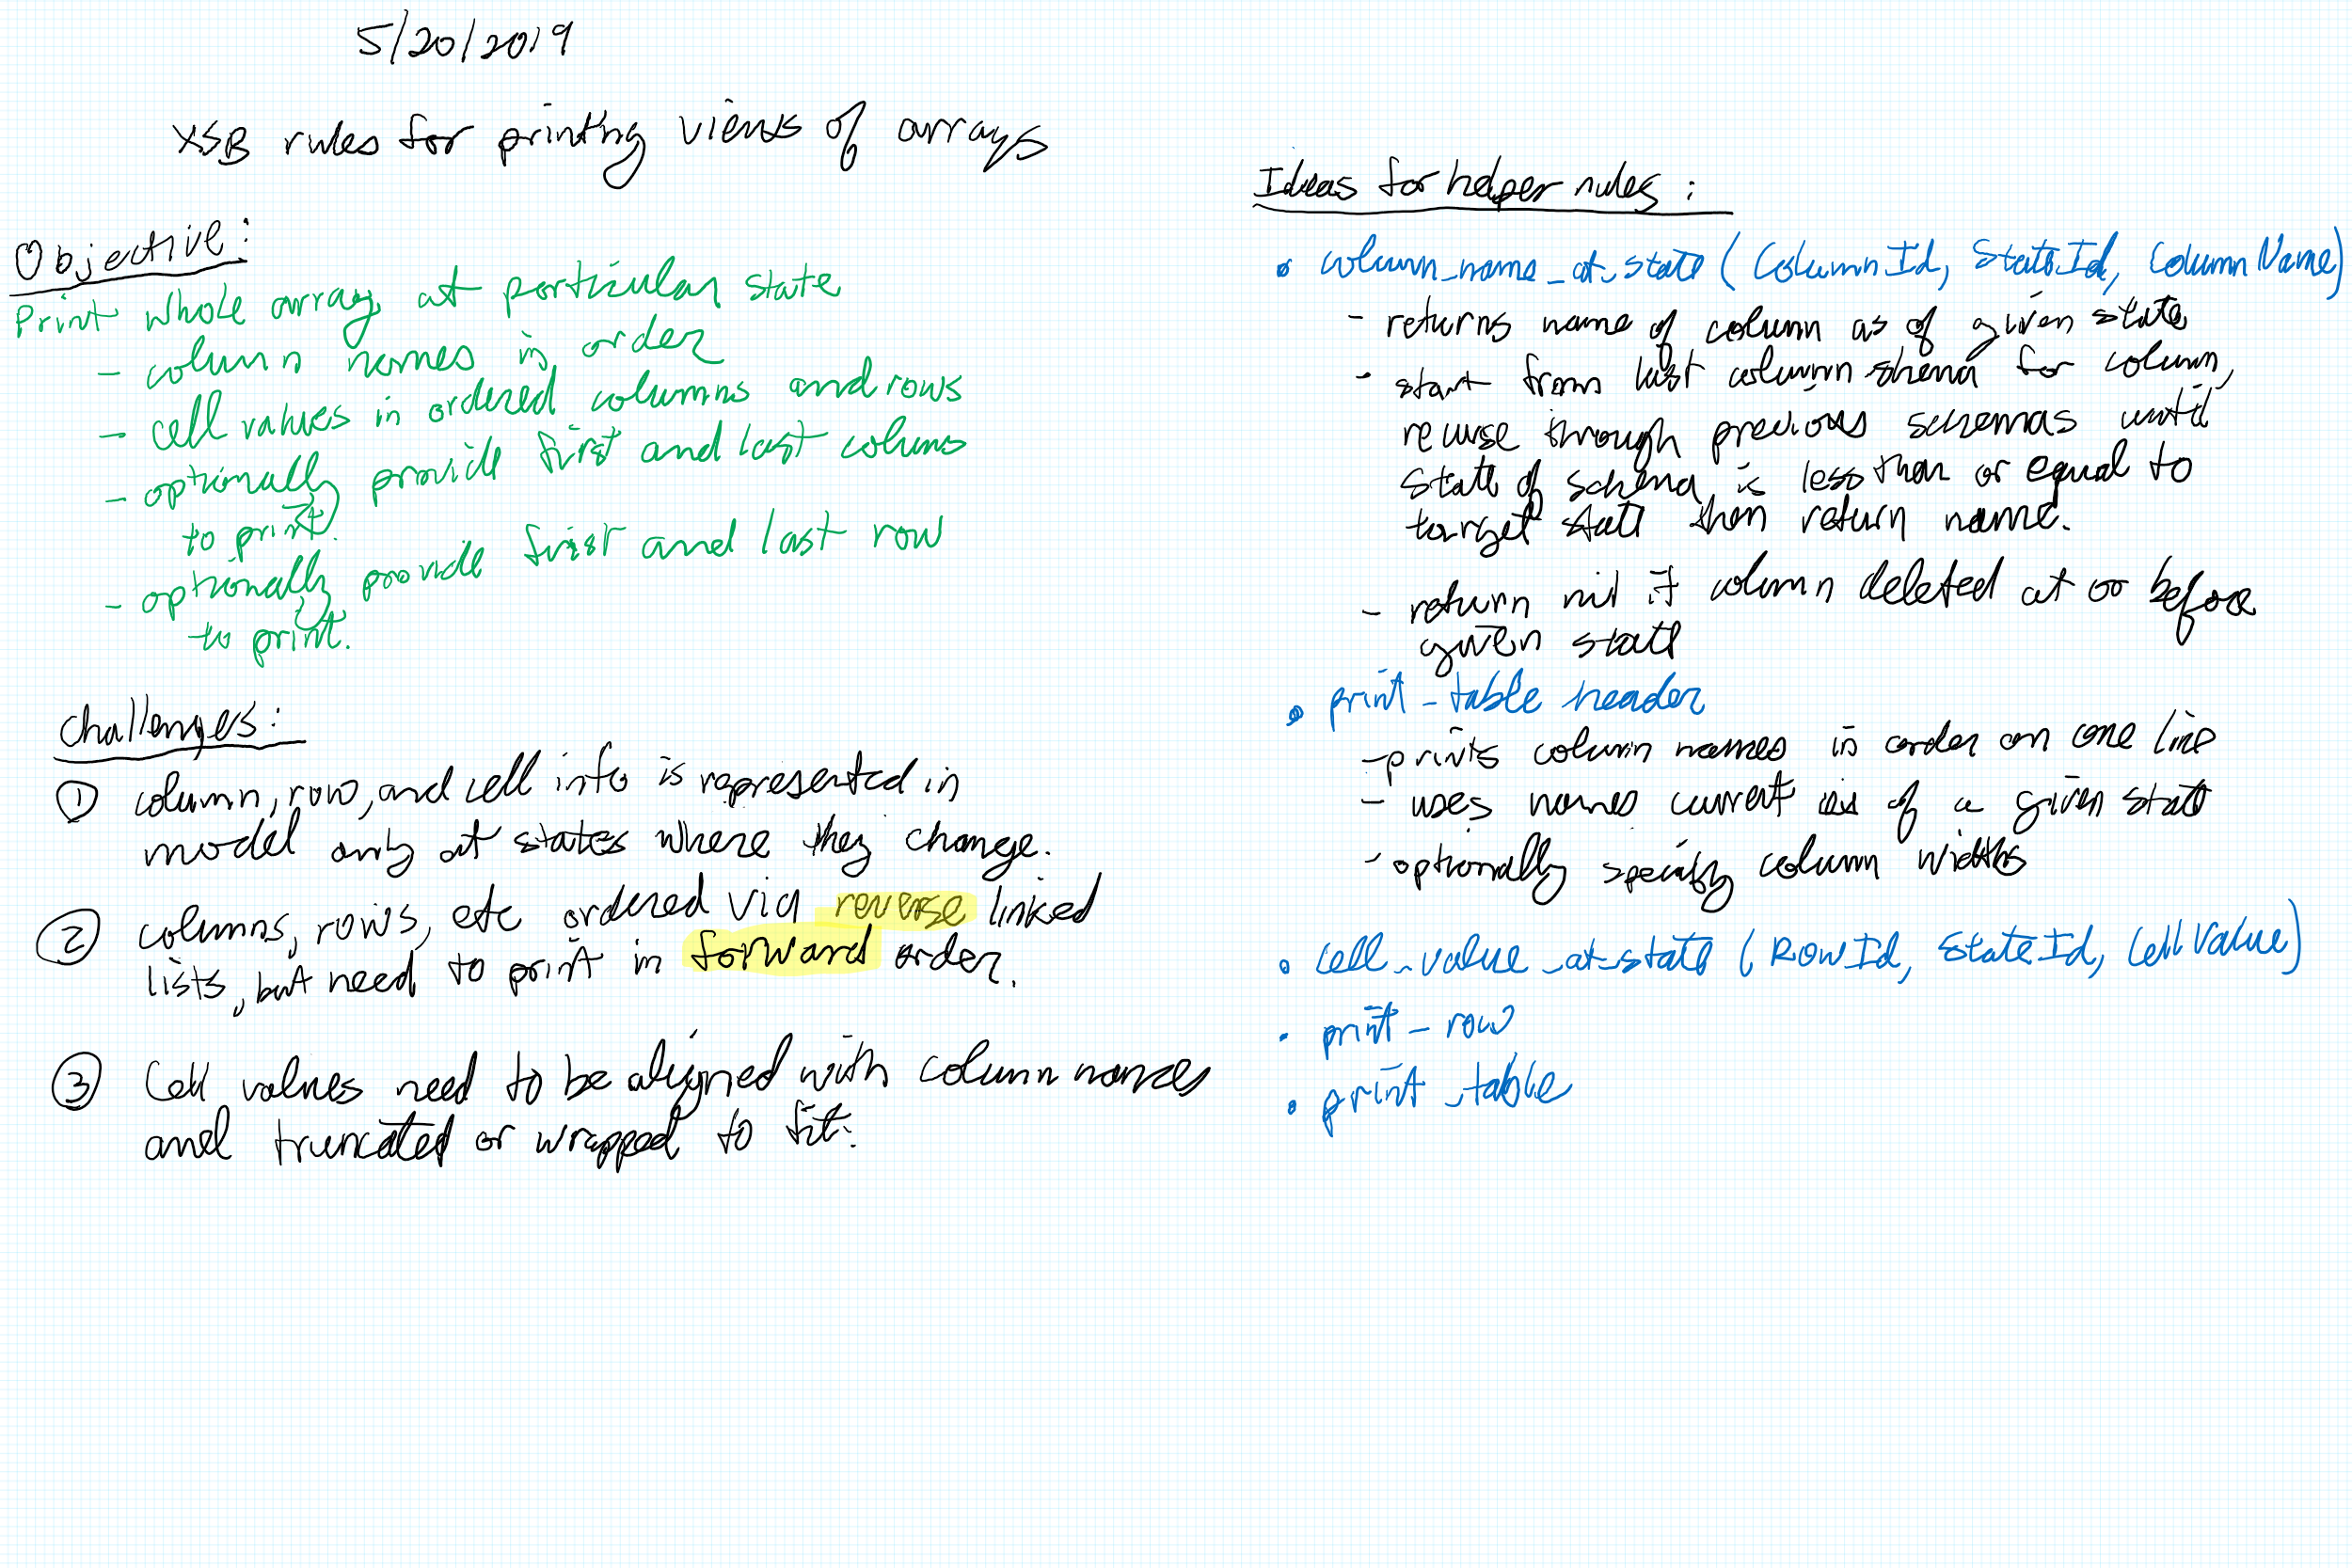 5/20/2019
XSB rules for printing views of arrays
Objective:
Print whole array at particular state
- column names in order
- cell values in ordered columns and rows
- optionally provide first and last column
to print.
- optionally provide first and last row
to print.
Challenges:
① column, row, and cell info is represented in
model only at states where they change.
② columns, rows, etc ordered via reverse linked
lists, but need to print in forward order.
③ Cell values need to be aligned with column names
and truncated or wrapped to fit.
Ideas for helper rules:
• column_name_at_state (ColumnId, StateId, ColumnName)
- returns name of column as of given state
- start from last column shema for column,
recurse through previous schemas until
state of schema is less than or equal to
target state then return name.
- return nil if column deleted at or before
given state
• print_table header
- prints column names in order on one line
- uses names current as of a given state
- optionally specify column widths
• cell_value_at_state (RowId, StateId, CellValue)
• print_row
• print_table